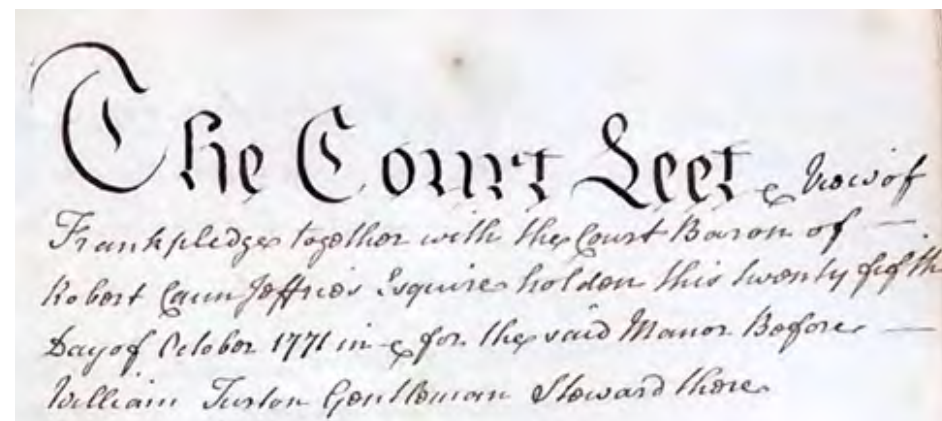 The Court Leet & View of
Frankpledge together with the Court Baron of —
Robert Cann Jeffries Esquire holden this twenty fifth
Day of October 1771 in & for the said Manor Before —
William Turton Gentleman Steward there